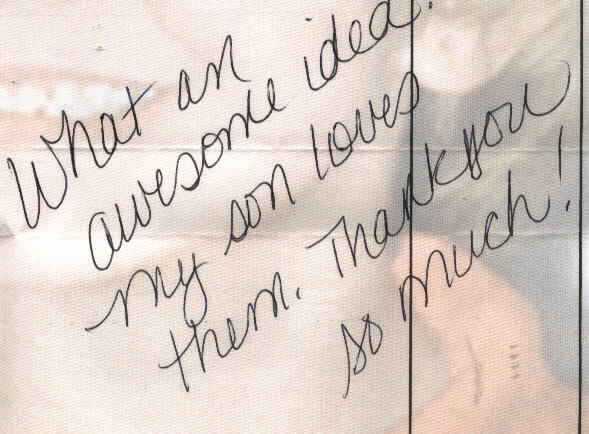 What an
awesome idea!
my son loves
them. Thank you
so much!